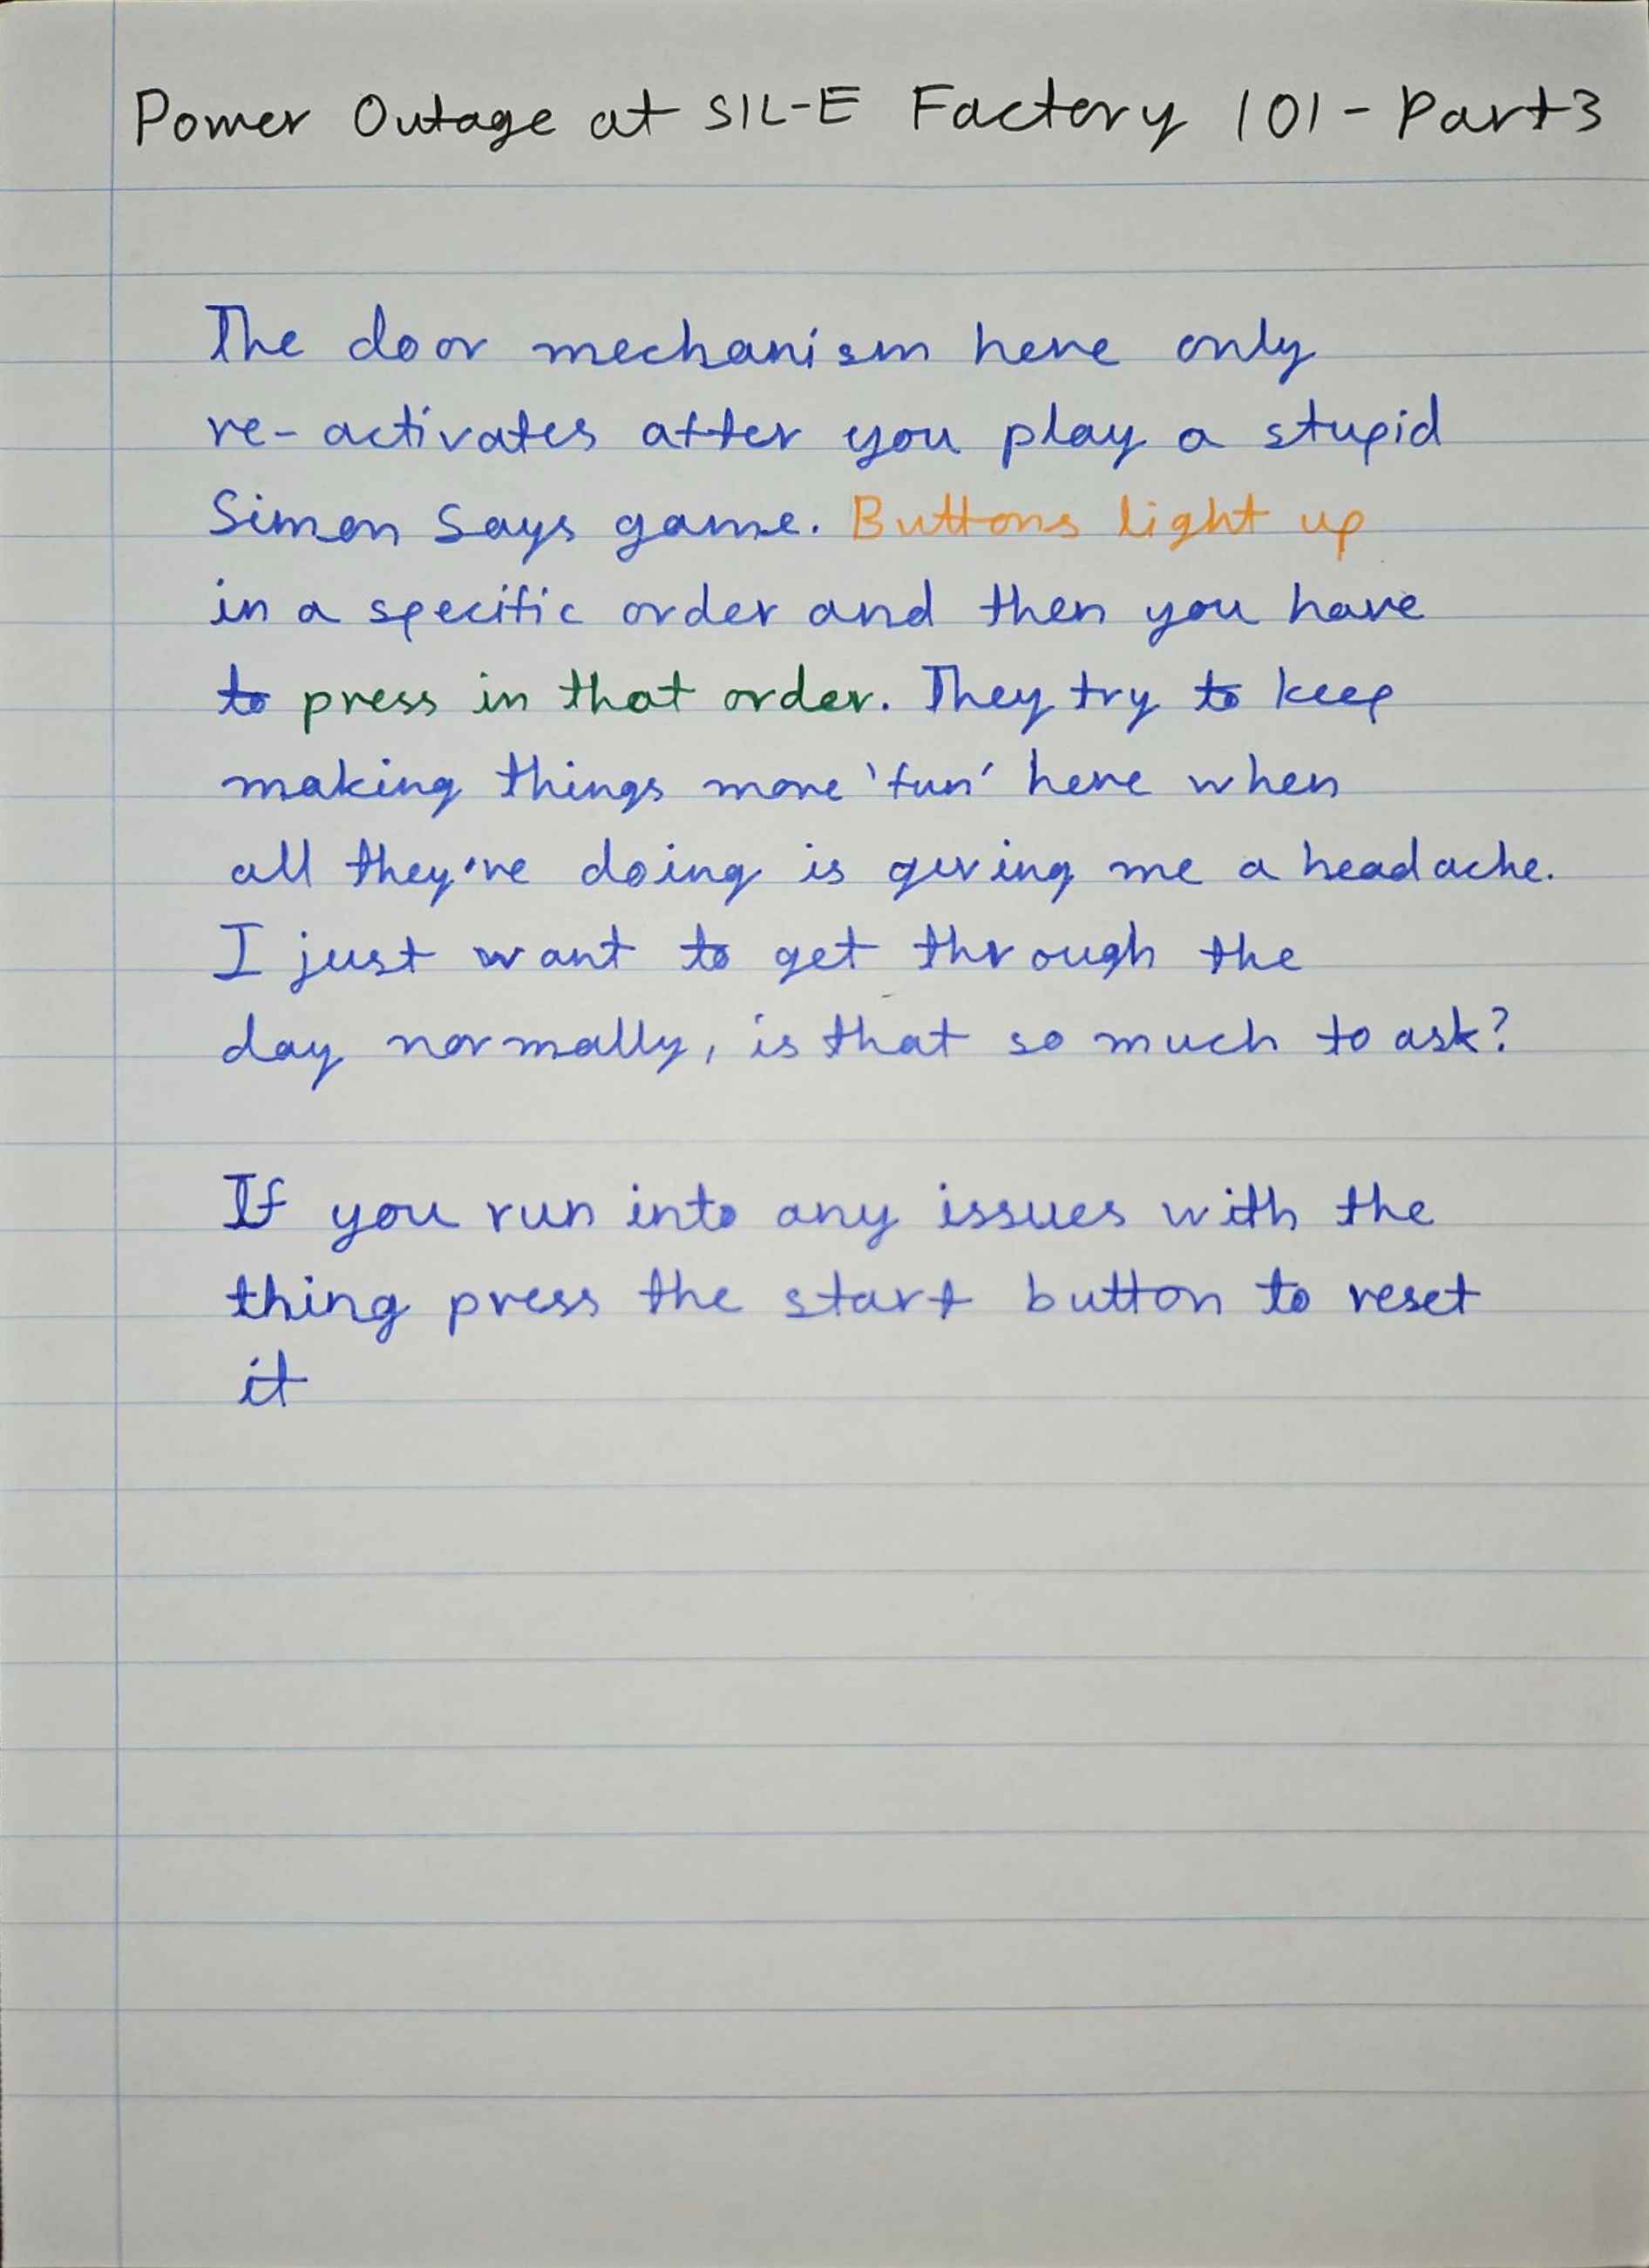 Power Outage at SIL-E Factory 101 - Part 3
The door mechanism here only
re-activates after you play a stupid
Simon Says game. Buttons light up
in a specific order and then you have
to press in that order. They try to keep
making things more 'fun' here when
all they're doing is giving me a headache.
I just want to get through the
day normally, is that so much to ask?
If you run into any issues with the
thing press the start button to reset
it